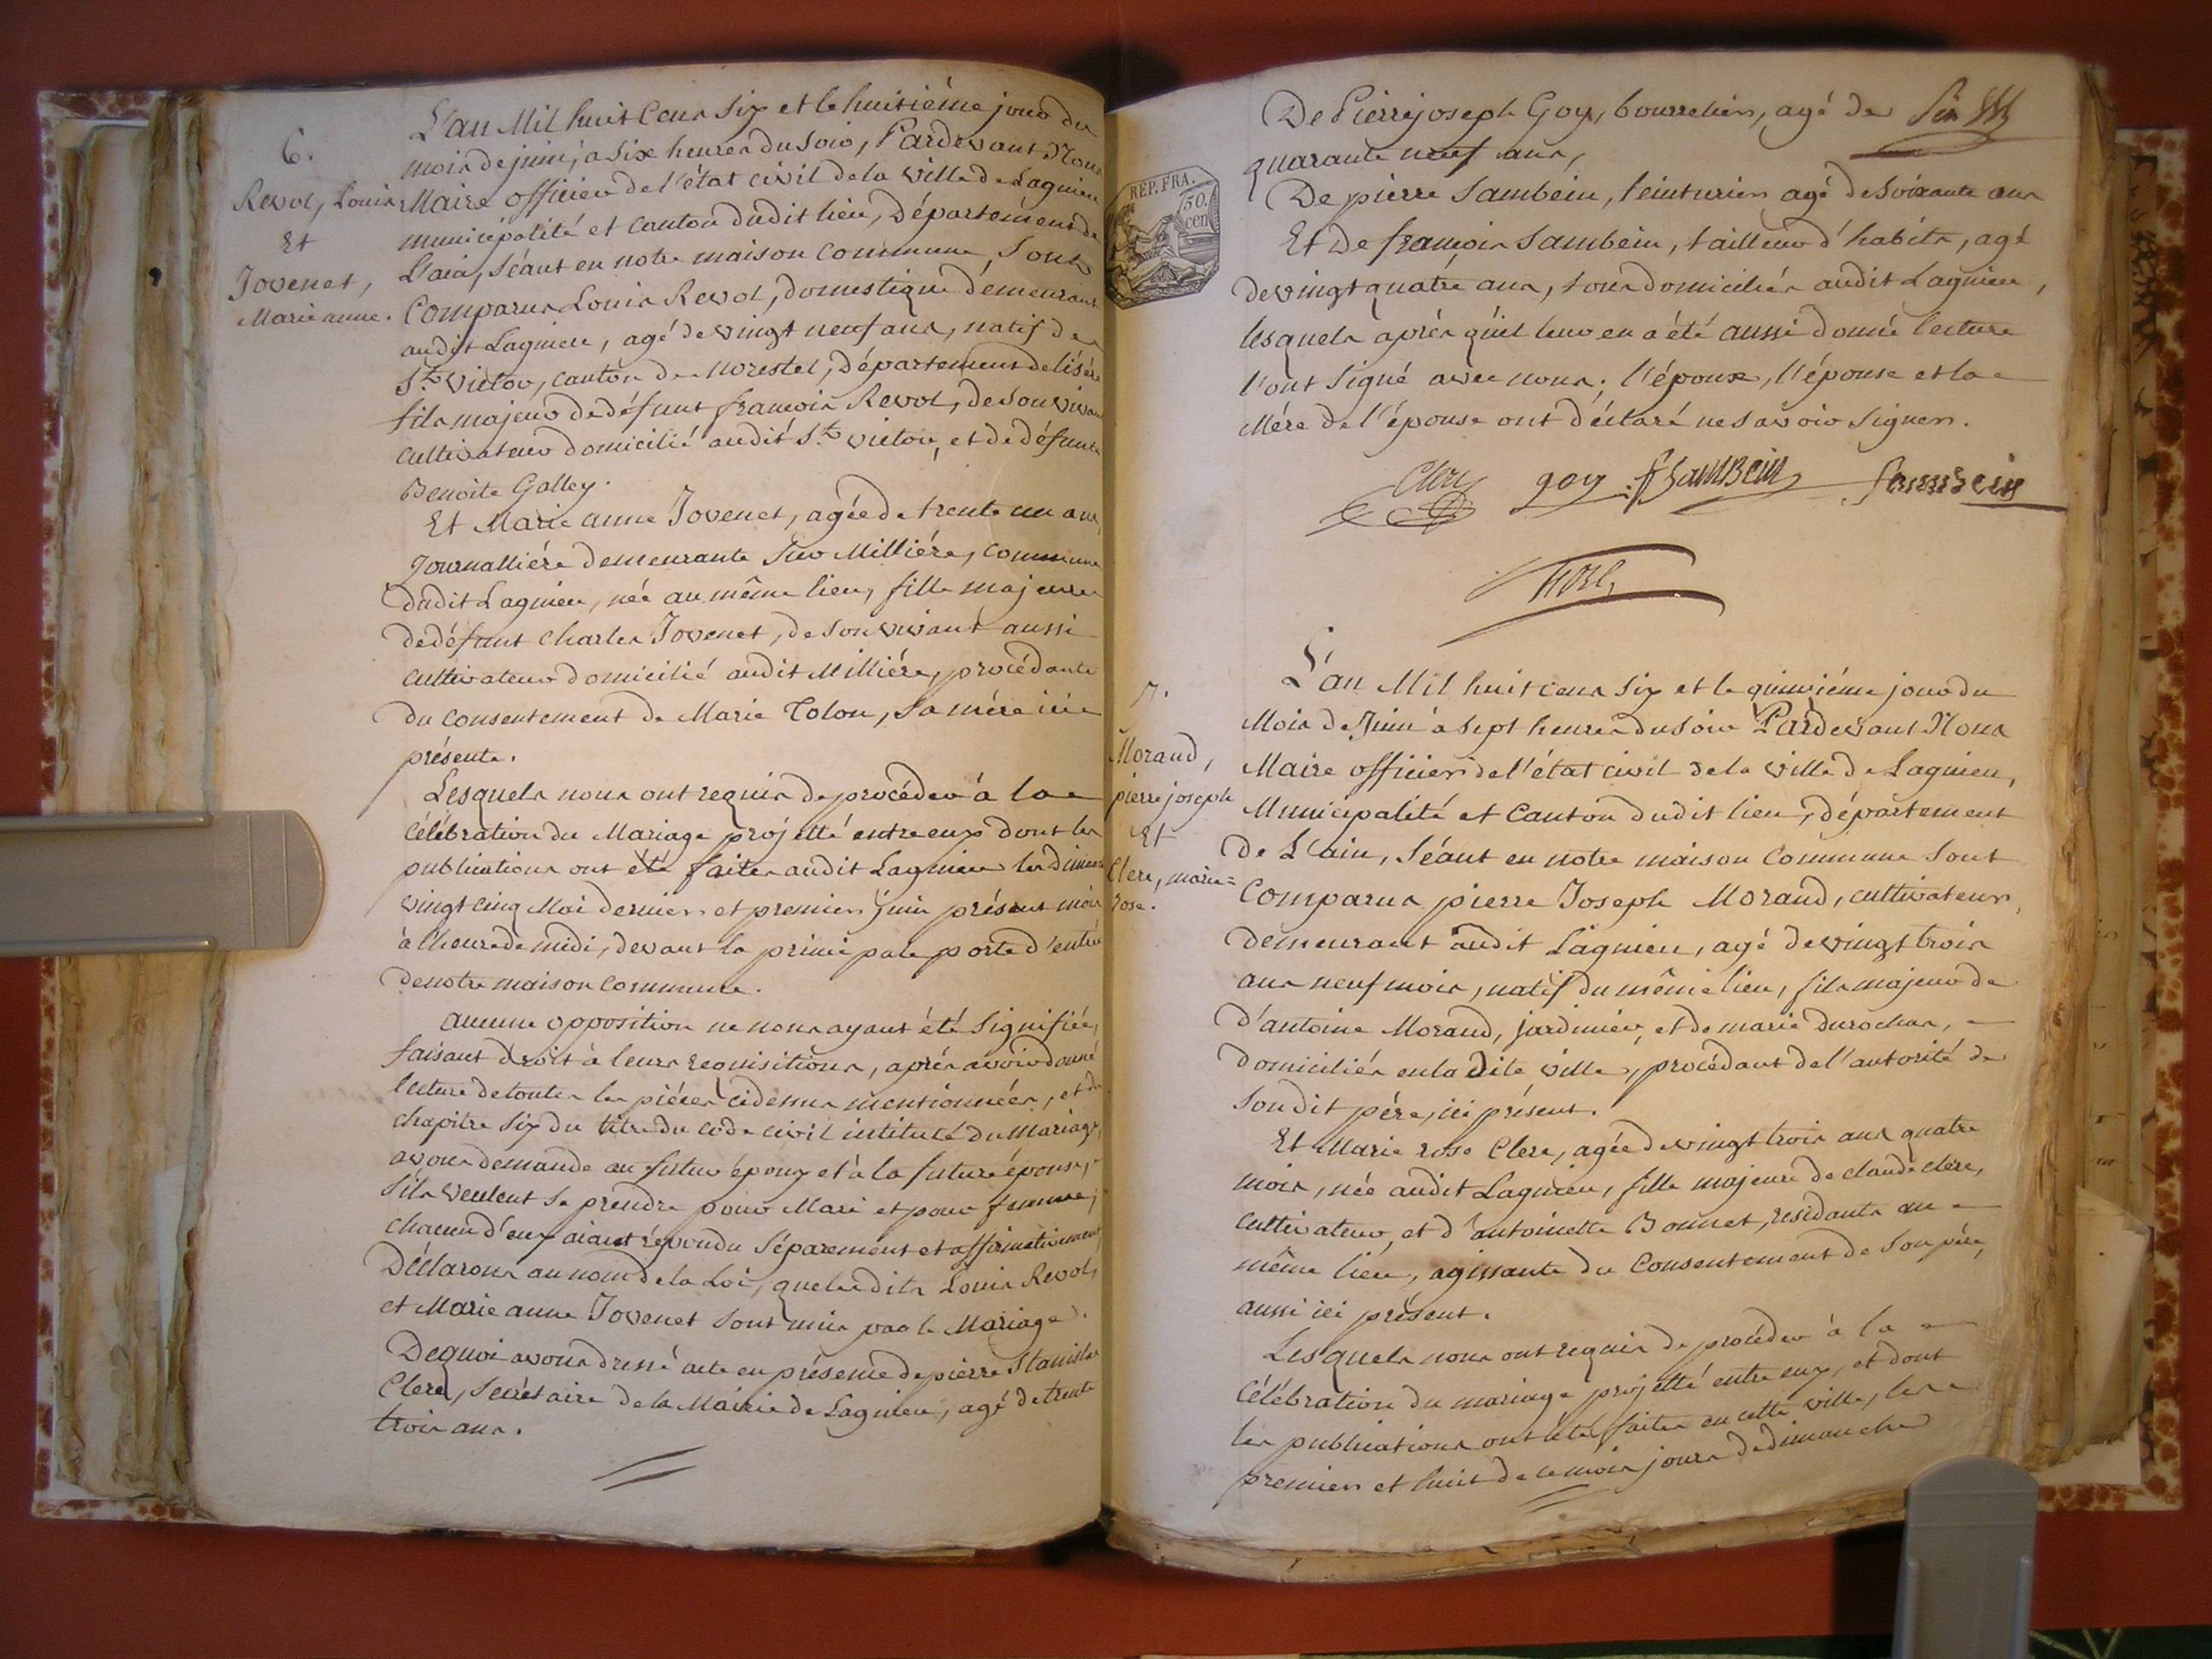 6.
Revol, Louis
Et
Jovenet,
Marie anne.
L'an Mil huit Cens Six et le huitiéme jour du
mois de juin, a Six heures du Soir, Pardevant Nous
Maire officier de l'état civil de la Ville de Lagnieu
municipalité et canton dudit lieu, Département de
L'ain, Séant en notre maison Commune, Sont
Comparus Louis Revol, domestique demeurant
audit Lagnieu, agé de vingt neuf ans, natif de
St. Victor, canton de Morestel, Département de lisére
fils majeur de défunt françois Revol, de Son vivant
cultivateur domicilié audit St. victor, et de défunte
Benoite Galley.
Et Marie anne Jovenet, agée de trente un ans,
Journalliére demeurante Sur Milliére, commune
dudit Lagnieu, née au même lieu, fille majeure
de défunt Charles Jovenet, de Son vivant aussi
cultivateur domicilié audit Milliére, procédante
du consentement de Marie Tolon, Sa mére icie
présente.
Lesquels nous ont requis de procéder à la
Célébration du Mariage projetté entre eux dont les
publications ont été faites audit Lagnieu les dimanches
vingt cinq Mai dernier et premier juin présent mois
à l'heure de midi, devant la principale porte d'entrée
de notre maison commune.
aucune opposition ne nous ayant été Signifiée,
faisant droit à leurs requisitions, aprés avoir donné
lecture de toutes les piéces cidessus mentionnées, et du
chapitre Six du titre du code civil intitulé du Mariage,
avons demandé au futur époux et à la future épouse,
s'ils veulent Se prendre pour Mari et pour femme,
chacun d'eux aiant répondu Séparement et affirmativement,
Déclarons au nom de la Loi, que lesdits Louis Revol,
et Marie anne Jovenet Sont unis par le Mariage.
De quoi avons dressé acte en présence de pierre Stanislas
Clerc, Secrétaire de la Mairie de Lagnieu, agé de trente
trois ans.
De Pierre joseph Goy, bourrelier, agé de
quarante neuf ans,
De pierre Sambein, teinturier agé de Soixante ans
Et De françois Sambein, tailleur d'habits, agé
de vingt quatre ans, tous domiciliés audit Lagnieu,
lesquels aprés qu'il leur en a été aussi donné lecture
l'ont Signé avec nous; l'époux, l'épouse et la
Mére de l'épouse ont déclaré ne Savoir Signer.
Clerc goy fSamBein Sambein
REP. FRA.
50.
cen
7.
Morand,
pierre joseph
Et
Clerc, marie=
rose.
L'an Mil huit cens Six et le quinziéme jour du
Mois de Juin à Sept heures du Soir Pardevant Nous
Maire officier de l'état civil de la ville de Lagnieu,
Municipalité et Canton dudit lieu, département
de L'ain, Séant en notre maison Commune Sont
Comparus pierre Joseph Morand, cultivateur,
demeurant audit Lagnieu, agé de vingt trois
ans neuf mois, natif du même lieu, fils majeur de
d'antoine Morand, jardinier, et de marie durochas,
domiciliés en la dite ville, procédant de l'autorité de
Son dit pére, ici présent.
Et Marie rose Clerc, agée de vingt trois ans quatre
mois, née audit Lagnieu, fille majeure de claude clerc,
cultivateur, et d'antoinette Bonnet, residants au
même lieu, agissante du Consentement de Son pére,
aussi ici présent.
Lesquels nous ont requis de procéder à la
Célébration du mariage projetté entre eux, et dont
les publications ont été faites en cette ville, les
premier et huit de ce mois jours de dimanche